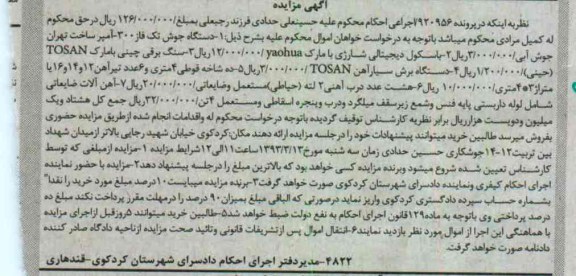 آگهی مزایده
نظربه اینکه درپرونده ۹۲۰۹۵۶اجراعی احکام محکوم علیه حسینعلی حدادی فرزند رجبعلی بمبلغ/۱۲۶/۰۰۰/۰۰۰ریال درحق محکوم
له کمیل مرادی محکوم میباشد باتوجه به درخواست خواهان اموال محکوم علیه بشرح ذیل:۱-دستگاه جوش تک فاز۳۰۰آمپر ساخت تهران
جوش آبی/۳/۰۰۰/۰۰۰ریال۲-باسکول دیجیتالی شارژی با مارک yaohua /۱۲/۰۰۰/۰۰۰ریال۳-سنگ برقی چینی بامارک TOSAN
(چینی)/۱/۲۰۰/۰۰۰ریال۴-دستگاه برش سیارآهن TOSAN /۳/۰۰۰/۰۰۰ریال۵-ده شاخه قوطی۴متری و۶عدد تیرآهن۱۲و۱۴و۱۶با
متراژ۳*۴متر/۱۰/۰۰۰/۰۰۰ ریال۶-هشت عدد درب آهنی۲ لته (حیاطی)مستعمل وضایعاتی/۲۰/۰۰۰/۰۰۰ریال۷-آهن آلات ضایعاتی
شامل لوله داربستی پایه فنس وشمع زیرسقف میلگرد ودرب وپنجره اسقاطی ومستعمل ۴تن/۳۲/۰۰۰/۰۰۰ریال جمع کل هشتاد ویک
میلیون ودویست هزارریال برابر نظریه کارشناس توقیف گردیده باتوجه به درخواست محکوم له واقدامات انجام شده ازطریق مزایده حضوری
بفروش میرسد طالبین خرید میتوانند پیشنهادات خود را در جلسه مزایده ارائه دهند مکان:کردکوی خیابان شهید رجایی بالاتر ازمیدان شهداد
بین تربیت۱۲-۱۴جوشکاری حسین حدادی زمان سه شنبه مورخ۱۳۹۳/۳/۱۳ساعت۱۱الی۱۲شرایط مزایده ۱-مزایده ازمبلغی که توسط
کارشناس تعیین شده شروع میشود وبرنده مزایده کسی خواهد بود که بالاترین مبلغ را درجلسه پیشنهاد دهد۲-مزایده با حضور نماینده
اجرای احکام کیفری ونماینده دادسرای شهرستان کردکوی صورت خواهد گرفت۳-برنده مزایده میبایست۱۰درصد مبلغ مورد خرید را نقدا"
بشماره حساب سپرده دادگستری کردکوی واریز نماید درصورتی که الباقی مبلغ بمیزان۹۰ درصد را درمهلت مقرر پرداخت نکند مبلغ ده
درصد پرداختی وی باتوجه به ماده۱۲۹قانون اجرای احکام به نفع دولت ضبط خواهد شد۵-طالبین خرید میتوانند ۵روزقبل ازاجرای مزایده
با هماهنگی این اجرا از اموال مورد نظر بازدید نمایند۶-انتقال اموال پس ازتشریفات قانونی وتائید صحت مزایده ازناحیه دادگاه صادر کننده
دادنامه صورت خواهد گرفت.
۴۸۲۲-مدیردفتر اجرای احکام دادسرای شهرستان کردکوی-قندهاری